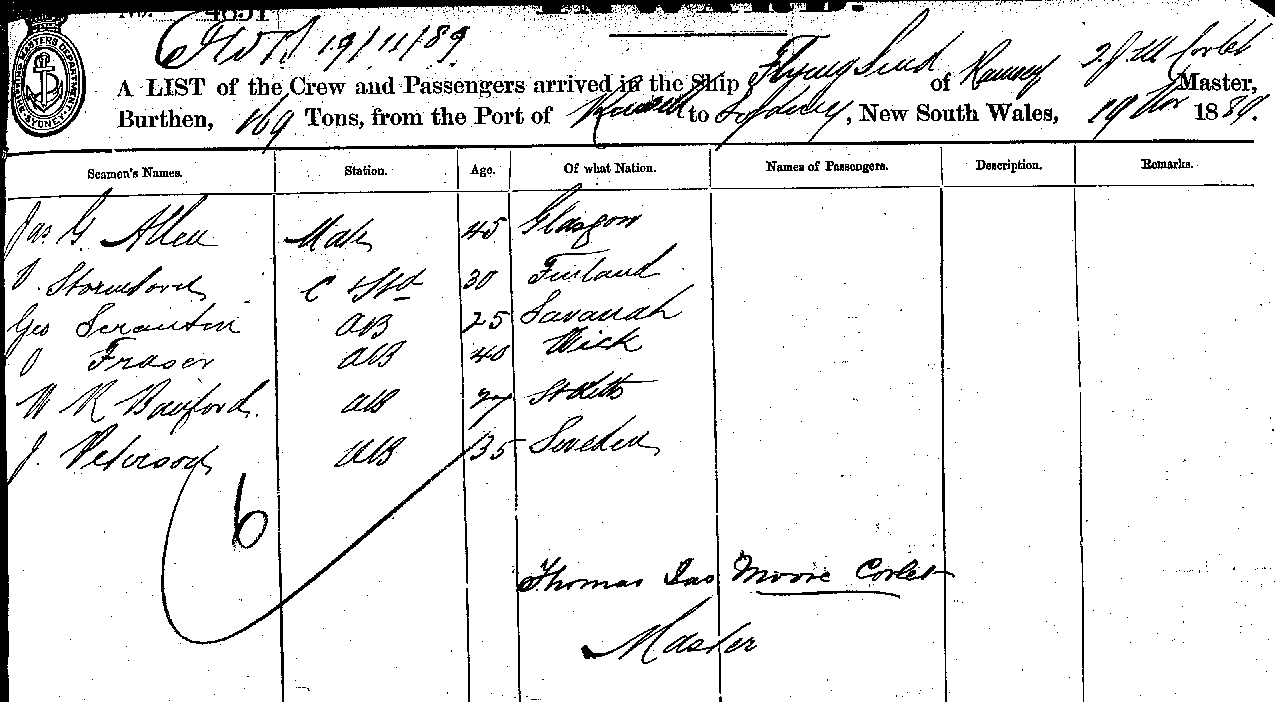 No. 4891
19/11/89
A LIST of the Crew and Passengers arrived in the Ship Flying Scud of Ramsey T J M Corlet Master,
Burthen, 169 Tons, from the Port of to Sydney, New South Wales, 19 Nov 1889.
Seamen's Names. Station. Age. Of what Nation. Names of Passengers. Description. Remarks.
Jas. G. Allen Mate 45 Glasgow
C & Std 30 Finland
Geo Scrantin AB 25 Savanah
Fraser AB 40 Wick
W R Bawford. AB 27 St Kitts
J. Peterson AB 35 Sweden
6
Thomas Jas Moore Corlet
Master